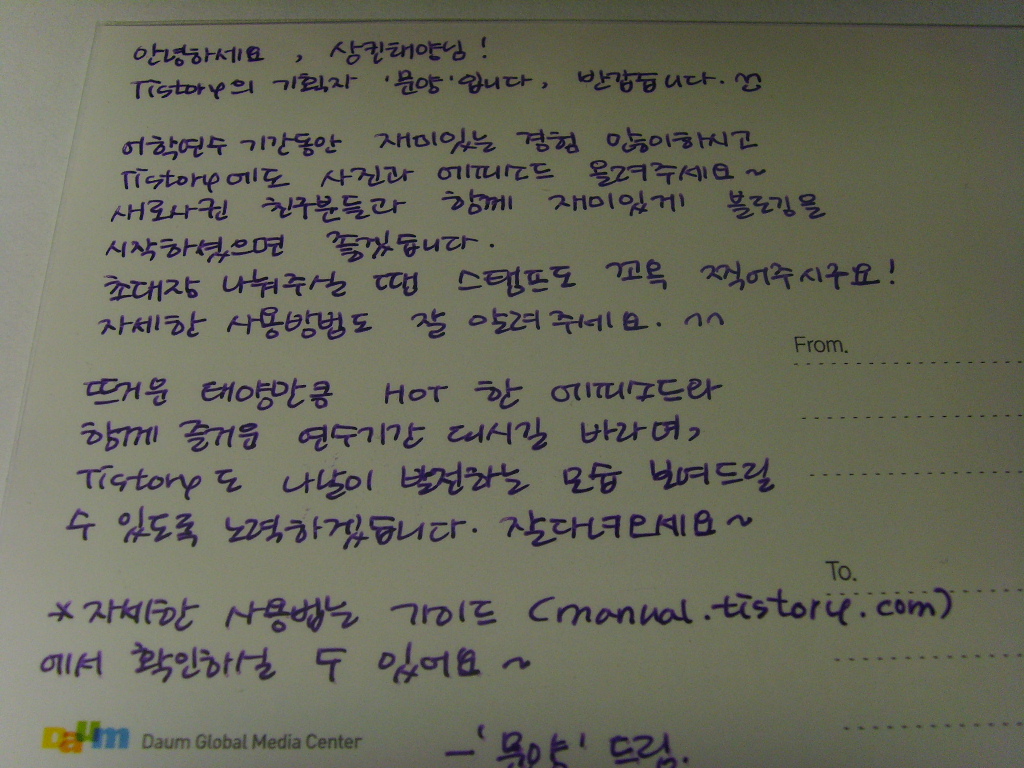 안녕하세요, 상킨태양님!
Tistory의 기획자 '문양'입니다, 반갑습니다. ^^
어학연수 기간동안 재미있는 경험 많이하시고
Tistory에도 사진과 에피소드 올려주세요~
새로사귄 친구분들과 함께 재미있게 블로깅을
시작하셨으면 좋겠습니다.
초대장 나눠주실 땐 스탬프도 꼬옥 찍어주시구요!
자세한 사용방법도 잘 알려주세요. ^^
From.
뜨거운 태양만큼 HOT 한 에피소드와
함께 즐거운 연수기간 되시길 바라며,
Tistory도 나날이 발전하는 모습 보여드릴
수 있도록 노력하겠습니다. 잘다녀오세요~
To.
* 자세한 사용법은 가이드 (manual.tistory.com)
에서 확인하실 수 있어요~
Daum Daum Global Media Center
-'문양' 드림.